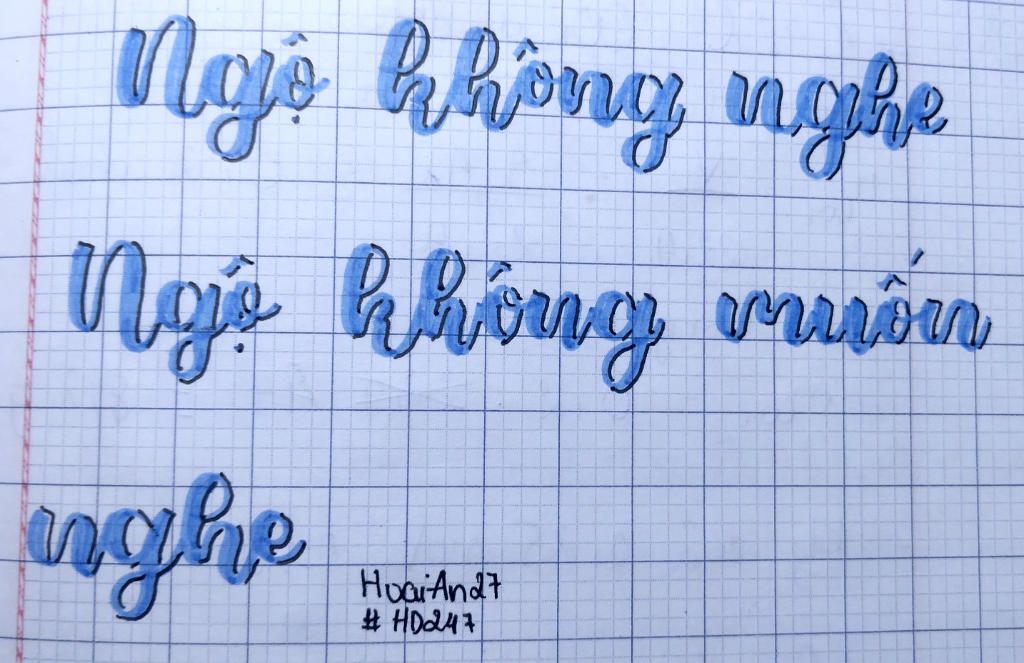 Ngộ không nghe
Ngộ không muốn
nghe
HoaiAn27
# HD247